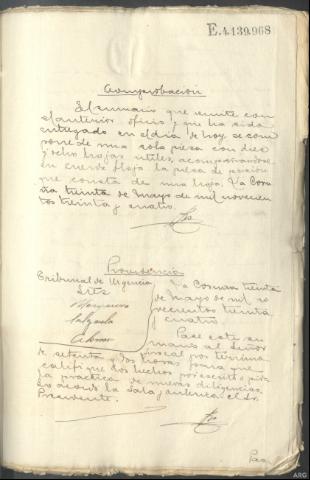 E.4.139.968
Comprobación
El sumario que remite con
el anterior oficio y que ha sido
entregado en el día de hoy se com
pone de una sola pieza con dos
y ocho hojas útiles, acompañándose
en cuerda floja la pieza de prisión
que consta de una hoja. La Coru
ña treinta de Mayo de mil novecien
tos treinta y cuatro.
Providencia
Tribunal de Urgencia
Sres
La Coruña treinta
de Mayo de mil no
vecientos treinta
y cuatro.
Pase este su
mario al Señor
fiscal por término
de setenta y dos horas para que
califique los hechos por escrito o pida
la práctica de nuevas diligencias.
Lo acordó la Sala y autoriza el Sr.
Presidente.
ARG